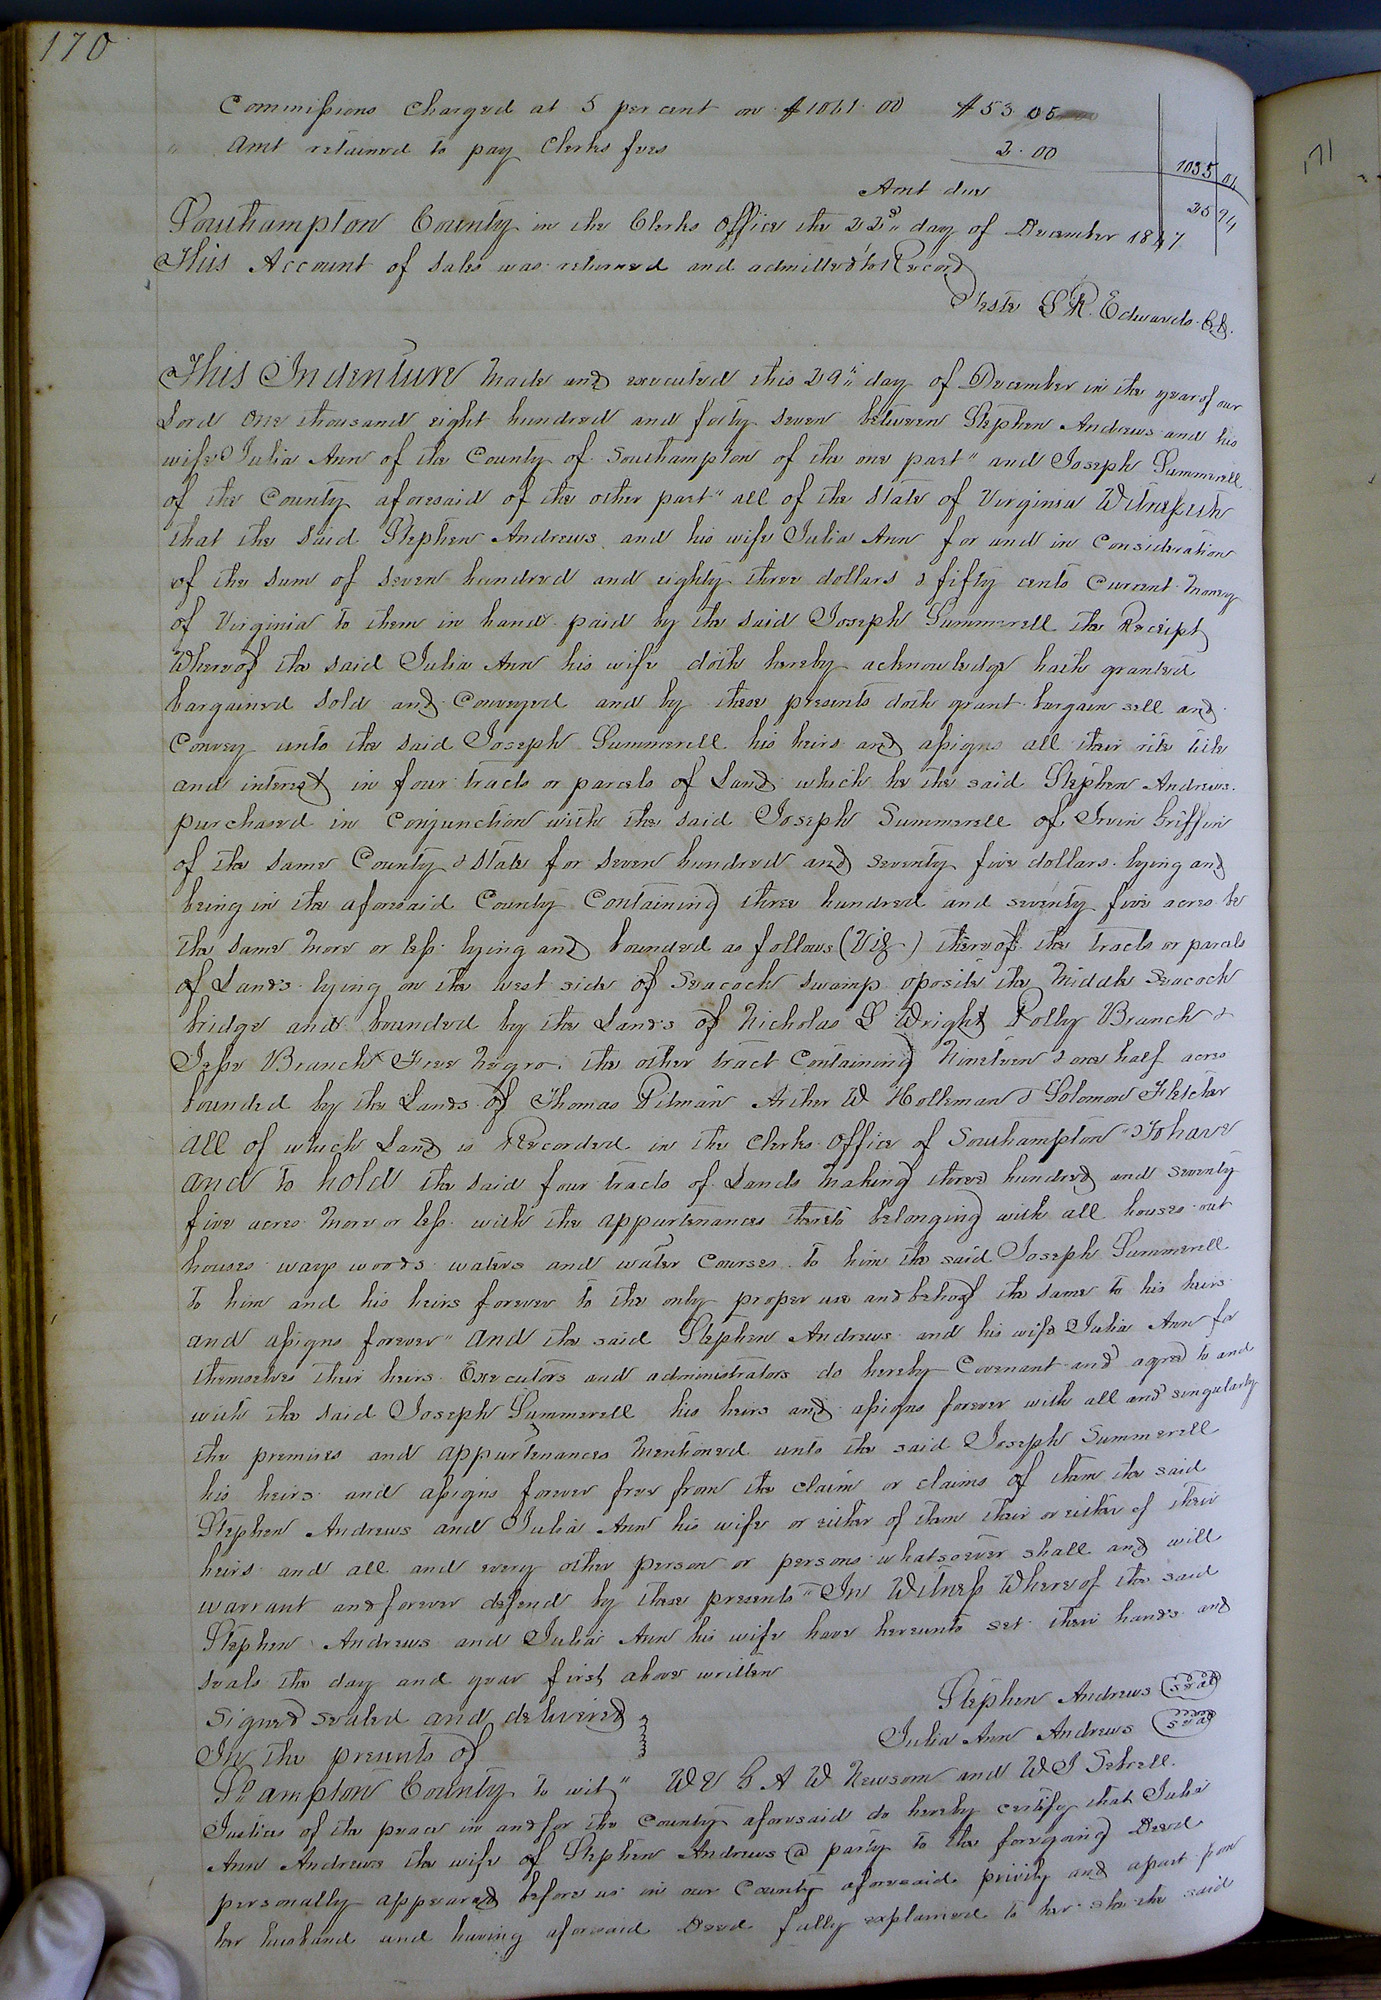 170
Commissions Charged at 5 per cent on $1061.00 $53 05
" Amt retained to pay Clerks fees 2.00
1035 04
Amt due 25 94
Southampton County in the Clerks Office the 22d day of December 1847
This Account of Sales was returned and admitted to Record
Teste L R. Edwards. C.
This Indenture Made and executed this 29th day of December in the year of our
Lord One thousand eight hundred and forty seven between Stephen Andrews and his
wife Julia Ann of the County of Southampton of the one part" and Joseph Summerell
of the County aforesaid of the other part" all of the State of Virginia Witnesseth
that the said Stephen Andrews and his wife Julia Ann for and in Consideration
of the sum of seven hundred and eighty three dollars & fifty cents Current Money
of Virginia to them in hand paid by the said Joseph Summerell the Receipt
Whereof the said Julia Ann his wife doth hereby acknowledge hath granted
bargained Sold and Conveyed and by these presents doth grant bargain sell and
Convey unto the said Joseph Summerell his heirs and assigns all their rite title
and interest in four tracts or parcels of Land which he the said Stephen Andrews
purchased in Conjunction with the said Joseph Summerell of Irvin Griffin
of the same County & State for seven hundred and seventy five dollars. lying and
being in the aforesaid County Containing three hundred and seventy five acres be
the same More or less lying and bounded as follows (Viz) three of the tracts or parcels
of Lands lying on the west side of Seacock Swamp oposite the Middle Seacock
bridge and bounded by the Lands of Nicholas L Wright Polly Branch &
Jesse Branch Free Negro. the other tract Containing Nineteen & one half acres
bounded by the Lands of Thomas Pitman Arther W Holleman & Solomon Fletcher
All of which Land is Recorded in the Clerks Office of Southampton" To have
and to hold the said four tracts of Lands Making three hundred and seventy
five acres More or less with the appurtenances thereto belonging with all houses out
houses ways woods waters and water Courses to him the said Joseph Summerell
to him and his heirs forever to the only proper use and behoof the same to his heirs
and assigns forever" And the said Stephen Andrews and his wife Julia Ann for
themselves their heirs Executors and administrators do hereby Covenant and agree to and
with the said Joseph Summerell his heirs and assigns forever with all and singularly
the premises and appurtenances Mentioned unto the said Joseph Summerell
his heirs and assigns forever free from the claim or claims of them the said
Stephen Andrews and Julia Ann his wife or either of them their or either of their
heirs and all and every other person or persons whatsoever shall and will
warrant and forever defend by these presents" In Witness Whereof the said
Stephen Andrews and Julia Ann his wife have hereunto set their hands and
seals the day and year first above written
Stephen Andrews Seal
Signed sealed and delivered
Julia Ann Andrews Seal
In the presents of
So ampton County to wit" We G A W Newsom and W J Sebrell
Justices of the peace in and for the County aforesaid do hereby certify that Julia
Ann Andrews the wife of Stephen Andrews a party to the foregoing Deed
personally appeared before us in our County aforesaid privily and apart from
her husband and having aforesaid Deed fully explained to her she the said
171